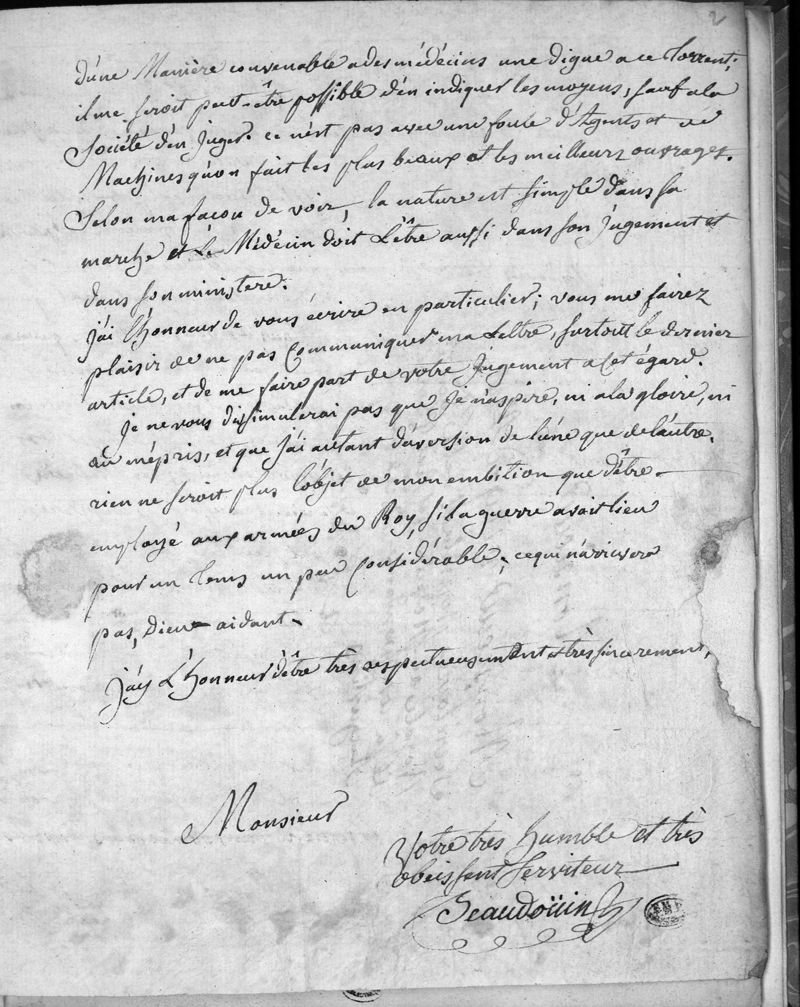 2
d'une Manière convenable a des médécins une digue a ce Torrent;
il me seroit peut-être possible d'en indiquer les moyens, sauf a la
Société d'en Juger. ce n'est pas avec une foule d'Agents et de
Machines qu'on fait les plus beaux et les meilleurs ouvrages.
Selon ma façon de voir, la nature est simple dans sa
marche et Le Médecin doit L'être aussi dans son jugement et
dans son ministere.
J'ai l'honneur de vous écrire en particulier; vous me fairez
plaisir de ne pas Communiquer ma Lettre, surtout le dernier
article, et de me faire part de votre Jugement a Cet égard.
Je ne vous dissimulerai pas que Je n'aspire, ni a la gloire, ni
au mépris, et que J'ai autant d'aversion de l'une que de l'autre.
rien ne seroit plus l'objet de mon embition que d'être
employé aux armées du Roy, si la guerre avoit lieu
pour un tems un peu Considérable; ce qui n'arrivera
pas, Dieu aidant.
J'ay L'honneur d'être très respectueusement et très sincerement,
Monsieur
Votre très humble et très
obeissent Serviteur
Beaudoüin